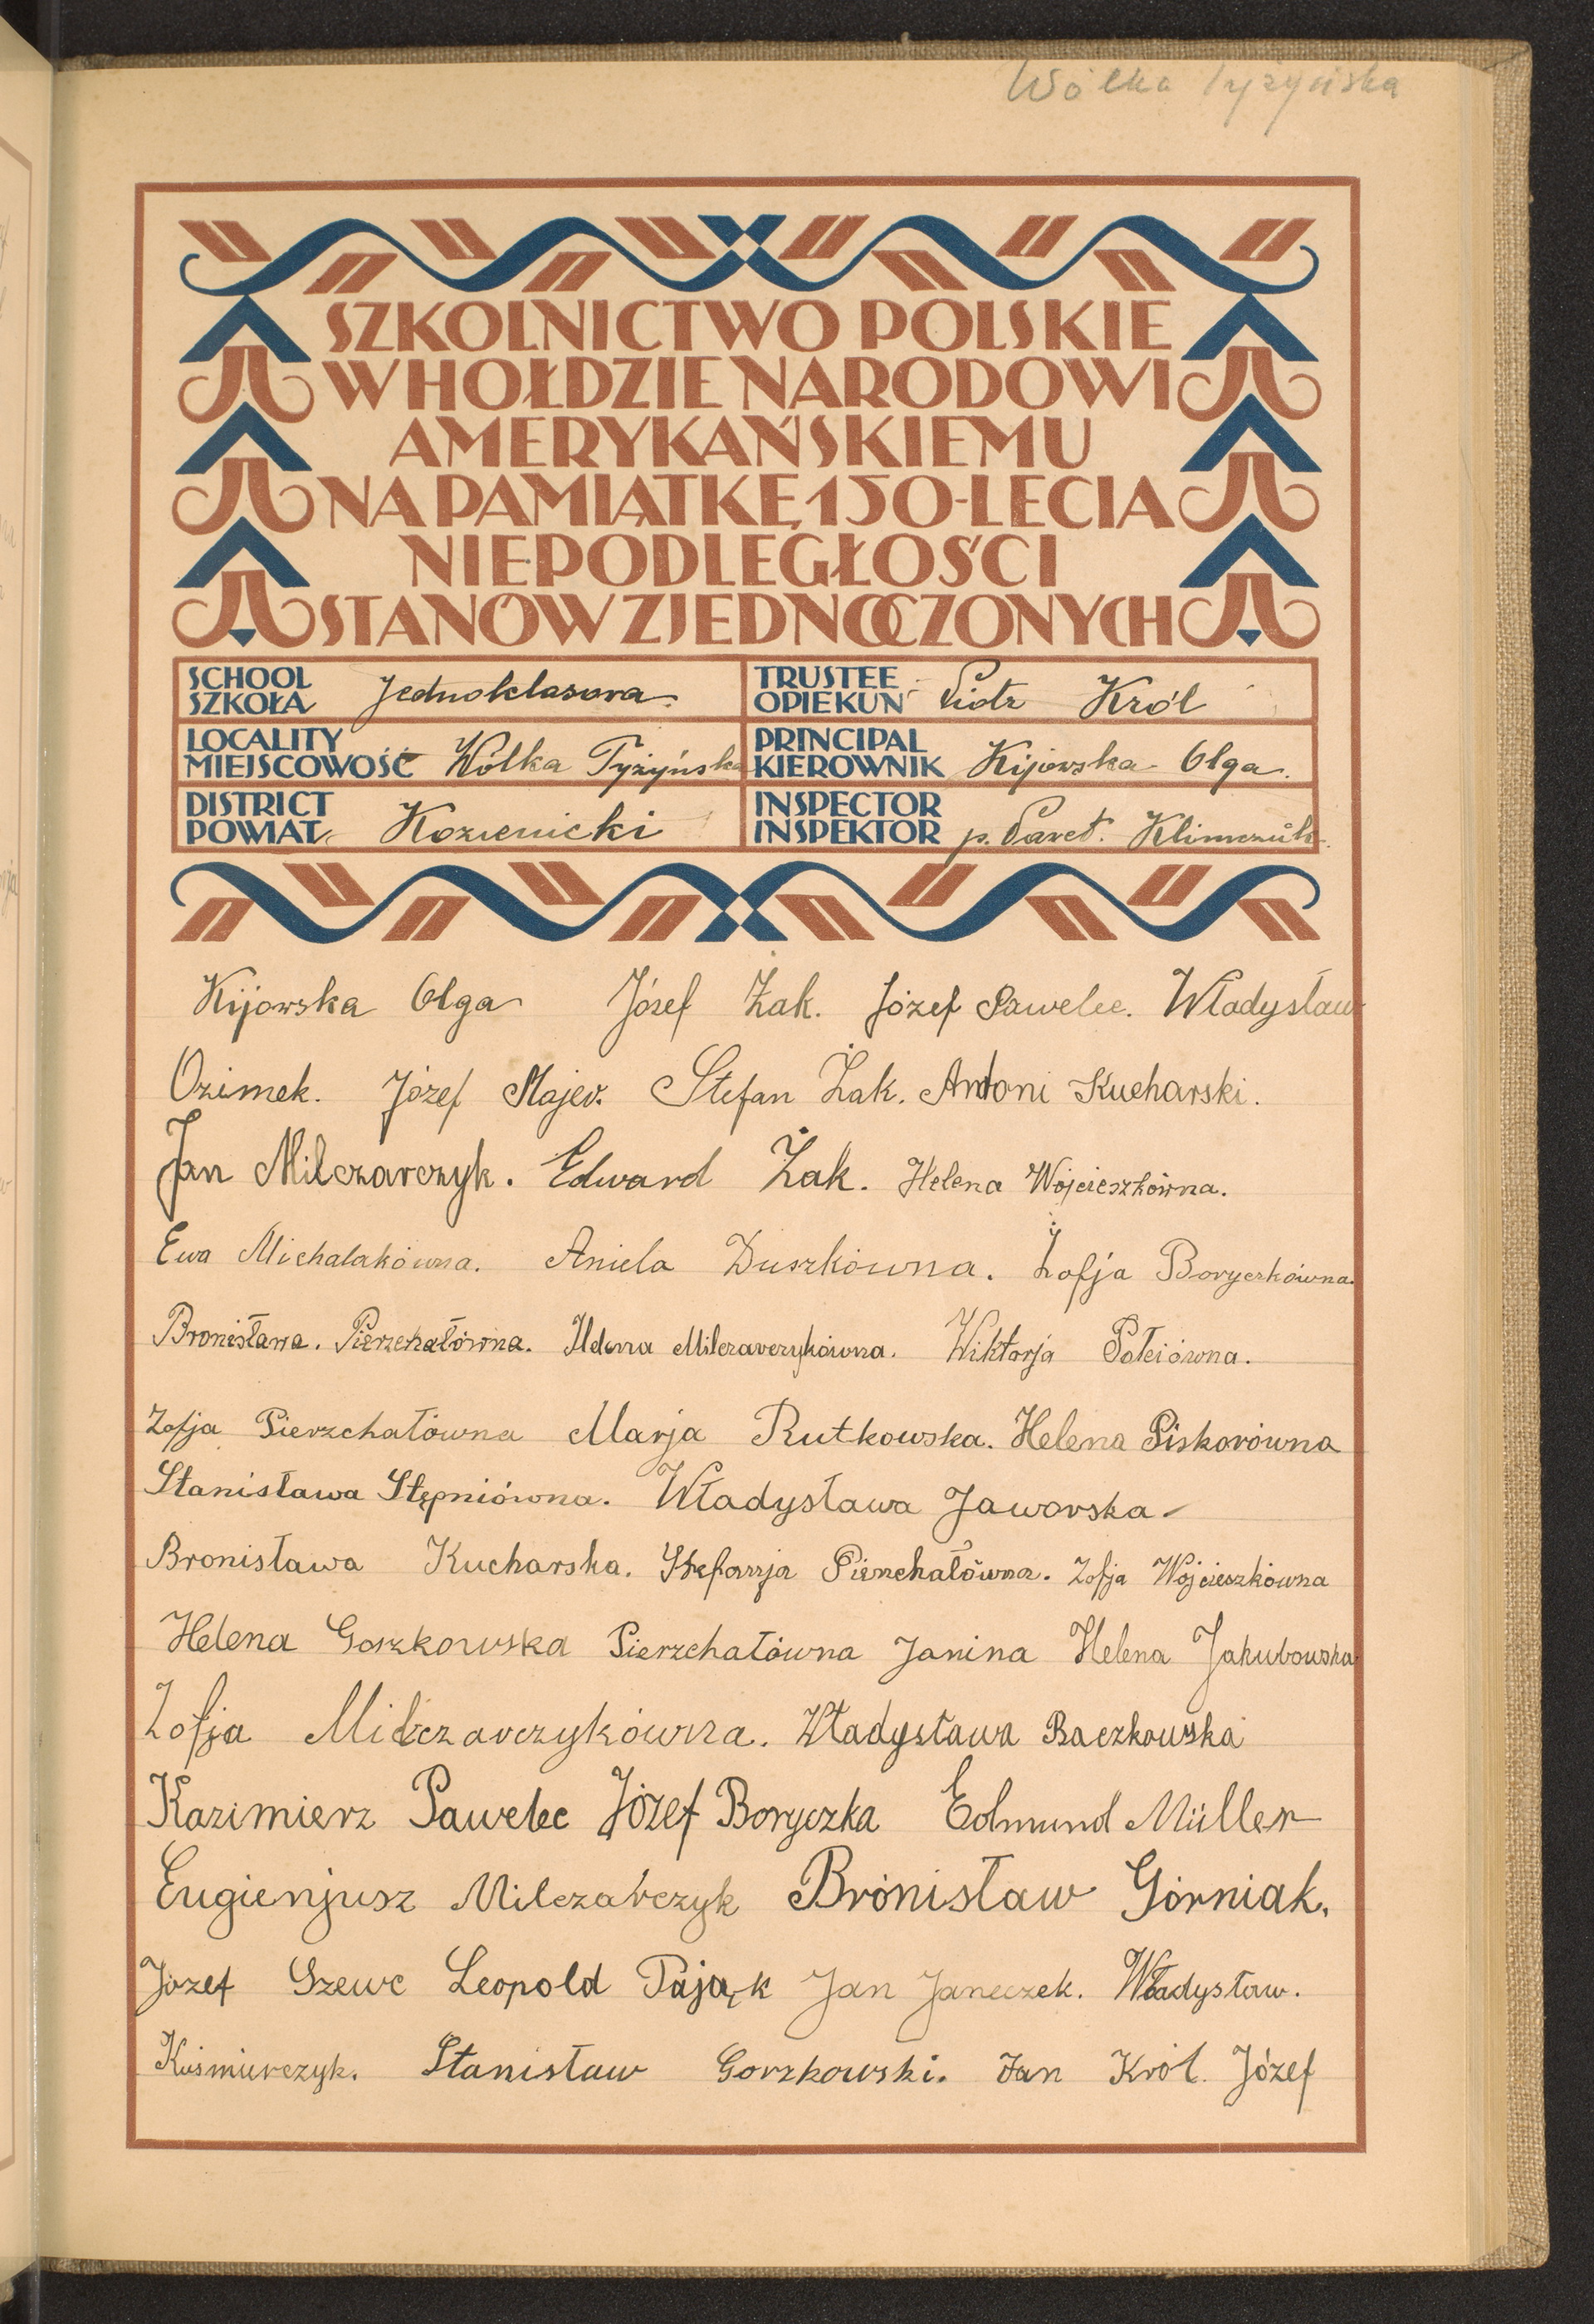 Wólka Tyżyńska
SZKOLNICTWO POLSKIE
W HOŁDZIE NARODOWI
AMERYKAŃSKIEMU
NA PAMIĄTKĘ 150-LECIA
NIEPODLEGŁOŚCI
STANÓW ZJEDNOCZONYCH
SCHOOL
SZKOŁA Jednoklasowa
TRUSTEE
OPIEKUN Piotr Król
LOCALITY
MIEJSCOWOŚĆ Wólka Tyżyńska
PRINCIPAL
KIEROWNIK Kijowska Olga.
DISTRICT
POWIAT Kozienicki
INSPECTOR
INSPEKTOR p. Paweł. Klimczuk
Kijowska Olga Józef Żak. Józef Pawelec. Władysław
Ozimek. Józef Majer. Stefan Żak. Antoni Kucharski.
Jan Milczarczyk. Edward Żak. Helena Wójcieszkówna.
Ewa Michalakówna. Aniela Duszkówna. Zofja Boryczkówna.
Bronisława. Pierzchałówna. Helena Milczarczykówna. Wiktorja Połciówna.
Zofja Pierzchałówna Marja Rutkowska. Helena Piskorówna
Stanisława Stępniówna. Władysława Jaworska
Bronisława Kucharska. Stefanja Pierzchałówna. Zofja Wójcieszkówna
Helena Goszkowska Pierzchałówna Janina Helena Jakubowska
Zofja Milczarczykówna. Władysława Baczkowska
Kazimierz Pawelec Józef Boryczka Edmund Müller
Eugienjusz Milczarczyk Bronisław Górniak.
Józef Szewc Leopold Pająk Jan Janeczek. Władysław.
Kuśmierczyk. Stanisław Gorzkowski. Jan Król. Józef